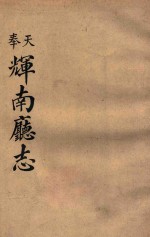 奉天
輝南廳志